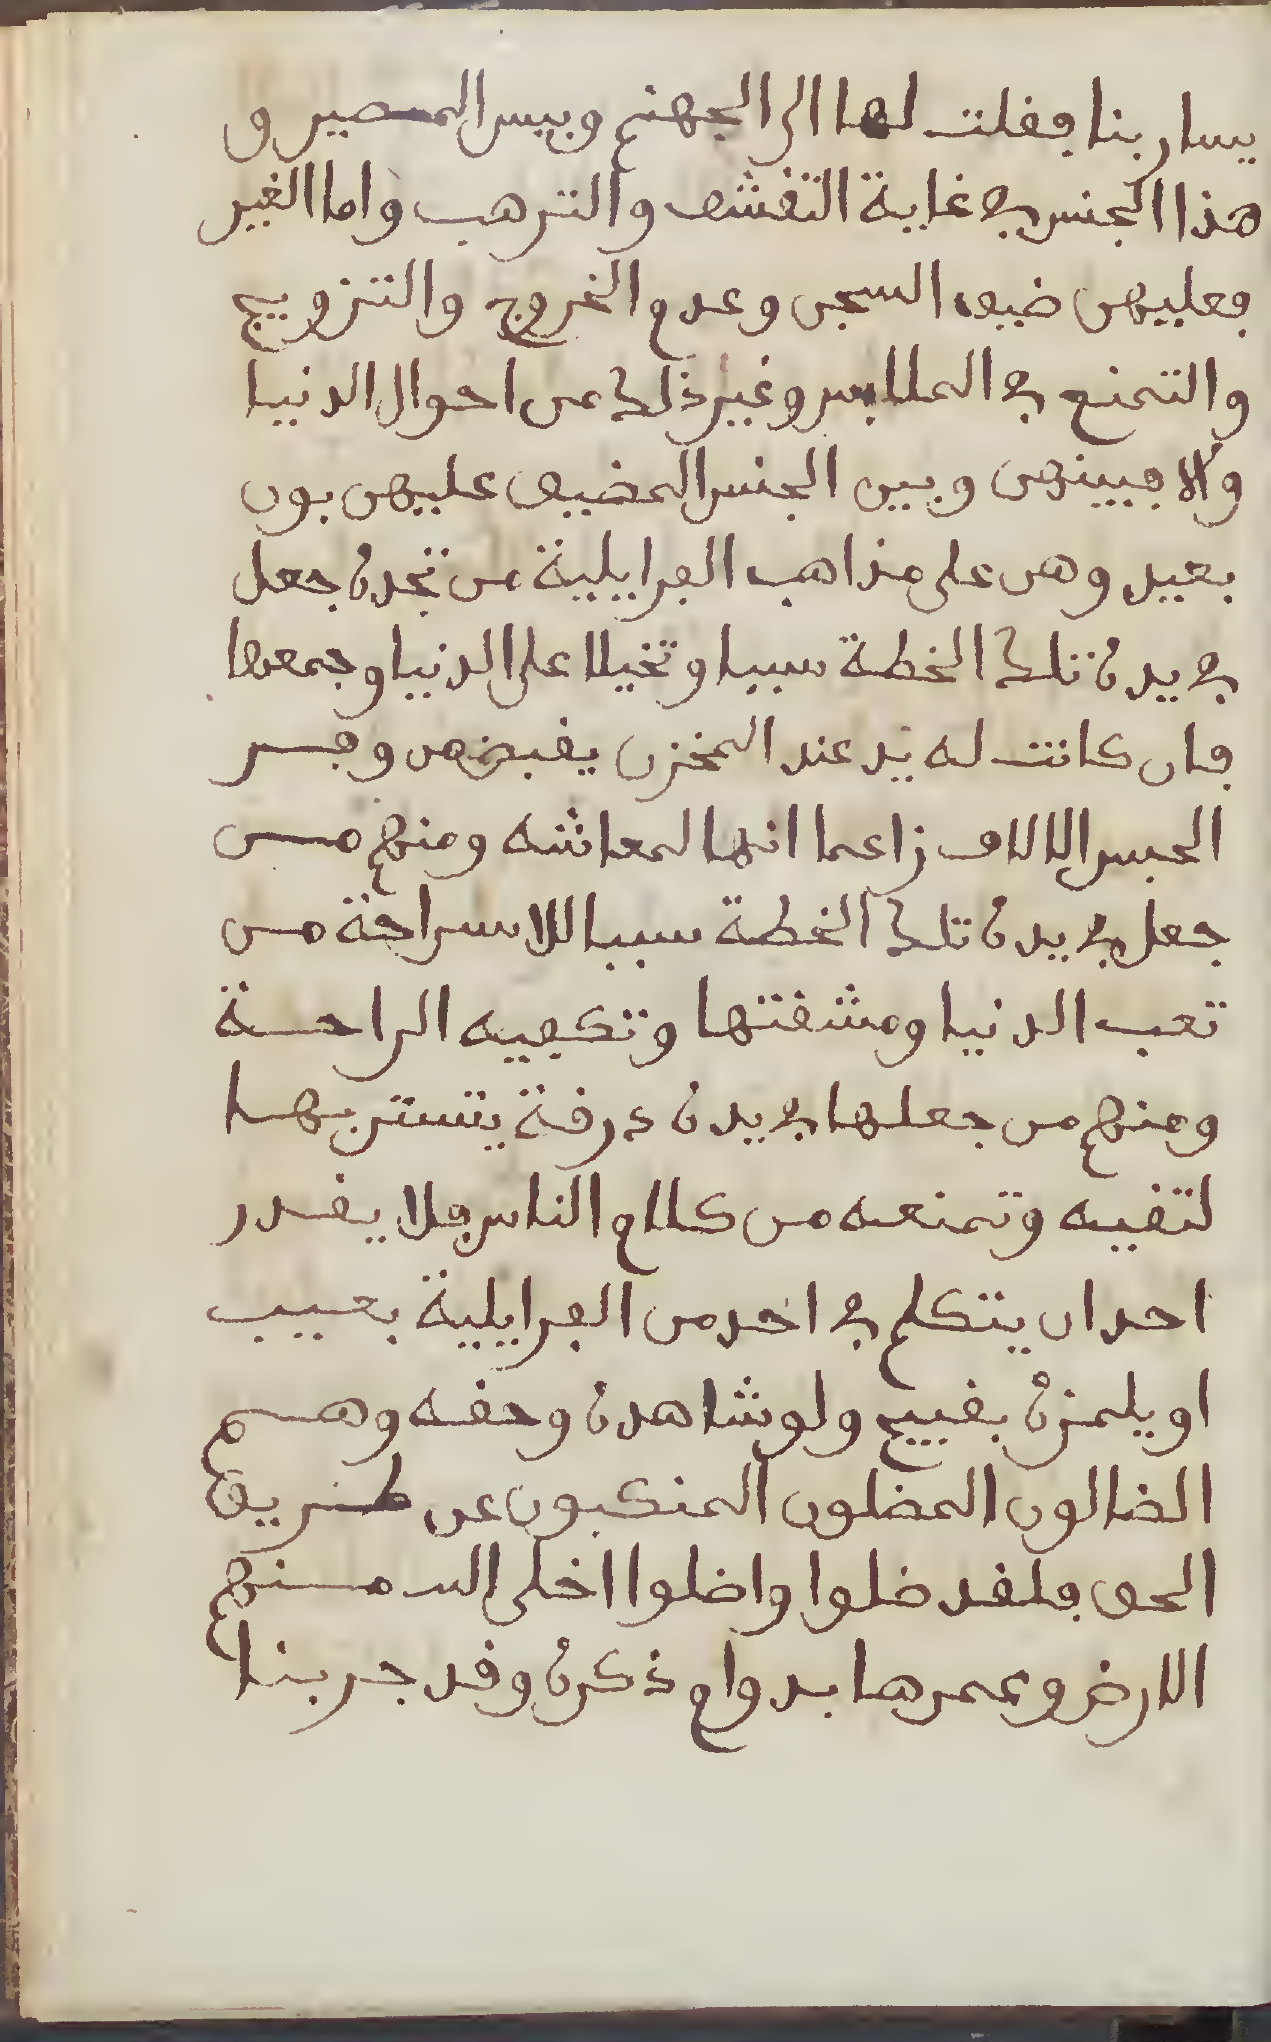 يسار بنا فقلت لها الى الجهنم وبيس المصير و
هذا الجنس في غاية التقشف والترهب واما الغير
فعليهن ضيق السجن وعدم الخروج والتزويج
والتمنع في الملابس وغير ذلك من احوال الدنيا
والا فبينهن وبين الجنس المضيق عليهن بون
بعيد وهن على مذاهب الفرايلية من تجده جعل
في يده تلك الخطة سببا وتخيلا على الدنيا وجمعها
فان كانت له يد عند المخزن يقبض من وفر
الحبس الالاف زاعما انها لمعاشه ومنهم من
جعل في يده تلك الخطة سببا للاسراحة من
تعب الدنيا ومشقتها وتكفيه الراحة
ومنهم من جعلها في يده درقة يتستر بها
لتقيه وتمنعه من كلام الناس فلا يقدر
احد ان يتكلم في احد من الفرايلية بعيب
او يلمزه بقبيح ولو شاهده وحققه وهم
الضالون المضلون المنكبون عن طريق
الحق فلقد ضلوا واضلوا اخلى الله منهم
الارض وعمرها بدوام ذكره وقد جربنا